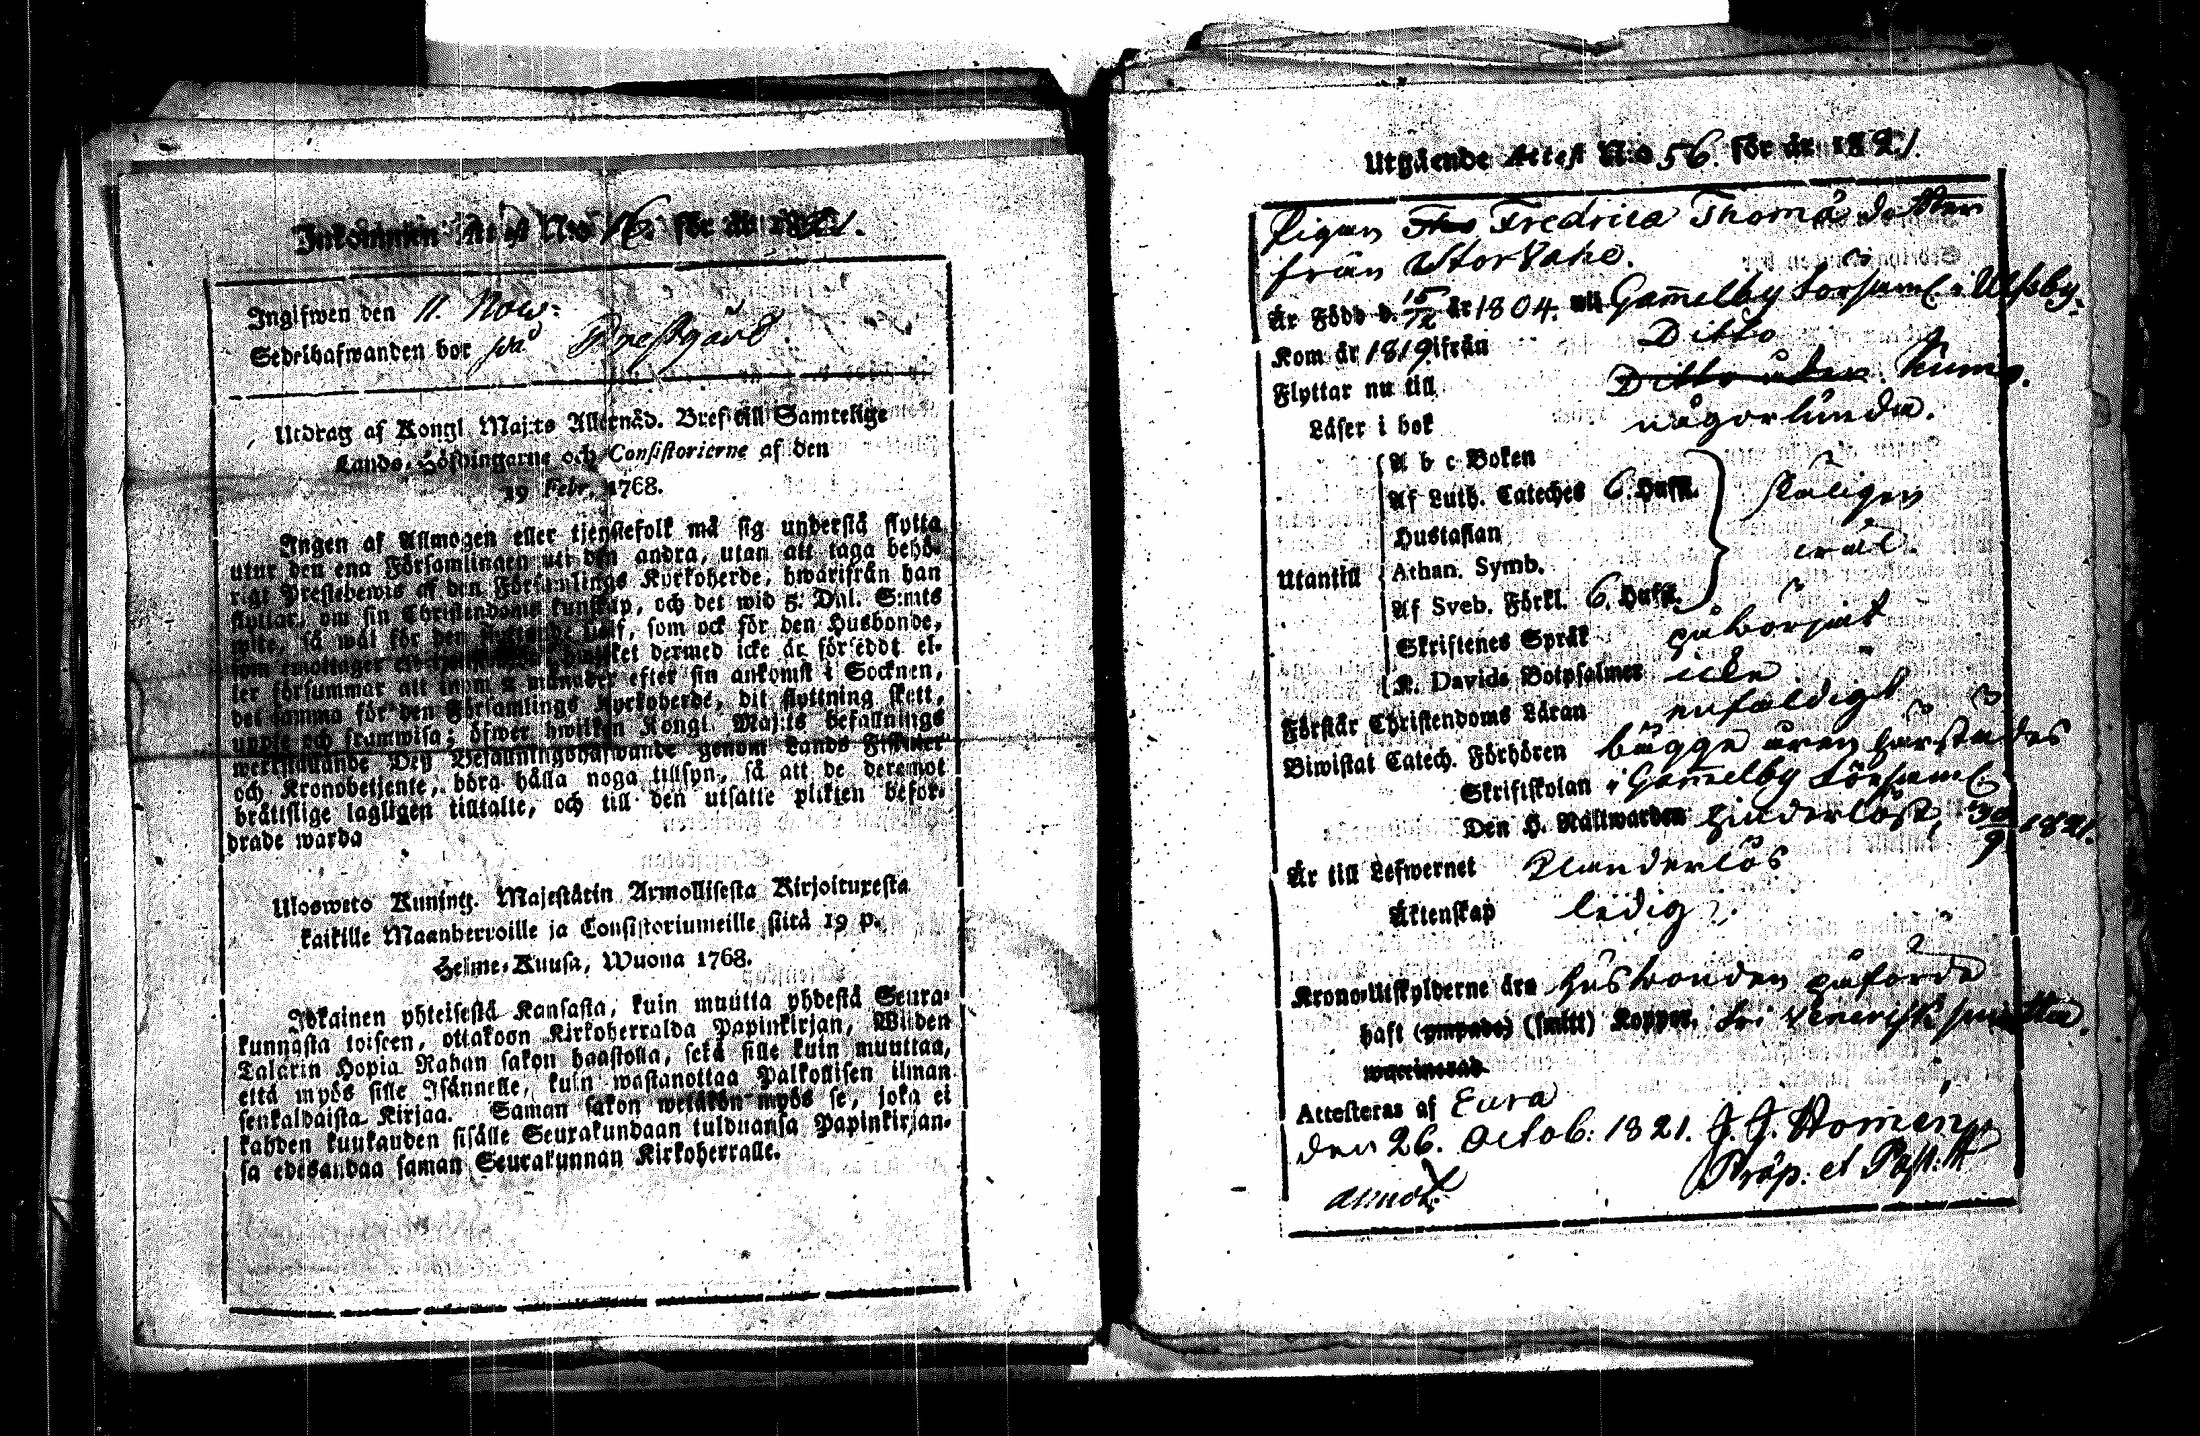 Inkommen Attest N:o 16. för år 1821.
Ingifwen den 11. Now:
Sedelhafwanden bor på Prestgård.
Utdrag af Kongl Maj:ts Allernåd. Bref till Samtelige
Lands-Höfdingarne och Consistorierne af den
19 Febr. 1768.
Ingen af Allmogen eller tjenstefolk må sig understå flytta
utur den ena Församlingen uti den andra, utan att taga behö-
rigt Prestebewis af den Församlings Kyrkoherde, hwarifrån han
flyttar, om sin Christendoms kunskap, och det wid 5: Dal. S:mts
wite, så wäl för den flyttande sielf, som ock för den Husbonde,
som emottager ett hjon, hwilket dermed icke är försedt el-
ler försummar att inom 2 månader efter sin ankomst i Socknen,
det samma för den Församlings Kyrkoherde, dit flyttning skett,
uppte och framwisa; öfwer hwilken Kongl. Maj:ts befallnings
werkställande Dess Befallningshafwande genom Lands Fiskaler
och Kronobetjente, böra hålla noga tillsyn, så att de deremot
bråttslige lagligen tilltalte, och till den utsatte plikten beför-
drade warda
Ulosweto Kuningt. Majestätin Armollisesta Kirjoituxesta
kaikille Maanherroille ja Consistoriumeille siitä 19 p.
Helme-Kuusa, Wuona 1768.
Jokainen yhteisestä Kansasta, kuin muutta yhdestä Seura-
kunnasta toiseen, ottakoon Kirkoherralda Papinkirjan, Wiiden
Talarin Hopia Rahan sakon haastolla, sekä sille kuin muuttaa,
että myös sille Isännelle, kuin wastanottaa Palkollisen ilman
senkaldaista Kirjaa. Saman sakon wetäkön myös se, joka ei
kahden kuukauden sisälle Seurakundaan tulduansa Papinkirjan-
sa edesandaa saman Seurakunnan Kirkoherralle.
Utgående Attest N:o 56. för år 1821.
Pigan Fredrica Thomædotter
från StorVahe.
Är Född d. 15/12 år 1804. uti Gam̄elby Församl. i Ulfsby.
Kom år 1819 ifrån Ditto
Flyttar nu till Ditto åter. Kumo.
Läser i bok någorlunda.
A b c Boken
Af Luth. Cateches 6. Hufst.
Hustaflan
Utantill Athan. Symb.
Af Sveb. Förkl. 6. Hufst.
skäligen
wäl.
Skriftenes Språk påbörjat
K. Davids Botpsalmer icke
Förstår Christendoms Läran enfaldigt
Biwistat Catech. Förhören bägge åren härstädes
Skriftskolan i Gam̄elby Församl.
Den H. Nattwarden hinderlöst, 30/9 1821.
Är till Lefwernet klanderlös
Äktenskap ledig.
Krono-Utskylderne äro husbonden påförde
haft (ympade) (smitt) Koppor, fri Venerisk smitta.
waccinerad
Attesteras af Eura
den 26. Octob: 1821. J. J. Homén,
Præp. et Past:
annot.